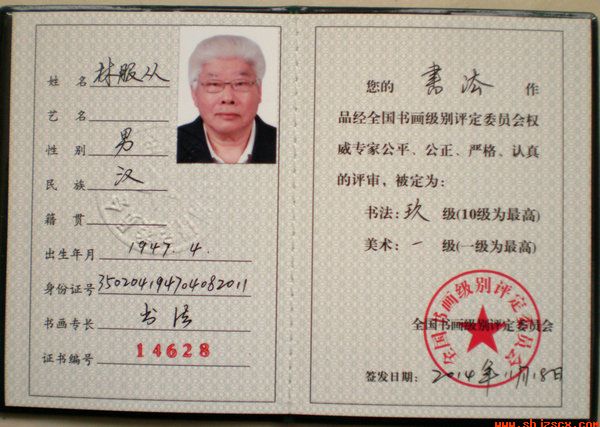 姓名 林服从
艺名
性别 男
民族 汉
籍贯
出生年月 1947.4.
身份证号 350204194704082011
书画专长 书法
证书编号 14628
您的 书法 作
品经全国书画级别评定委员会权
威专家公平、公正、严格、认真
的评审，被定为：
书法：玖 级(10级为最高)
美术：一 级(一级为最高)
全国书画级别评定委员会
全国书画级别评定委员会
签发日期：2014年11月18日
www.shizscx.com